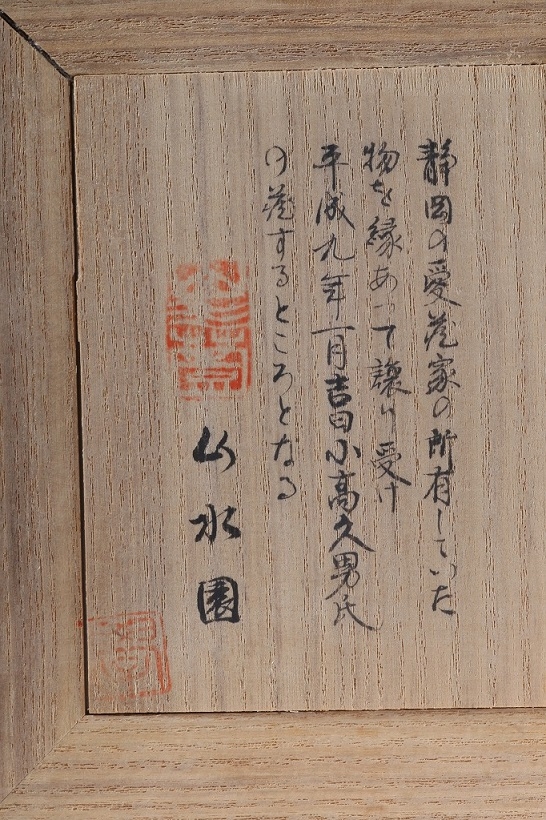 静岡の愛蔵家の所有していた
物を縁あって譲り受け
平成九年一月吉日小高久男氏
の蔵するところとなる
山水園